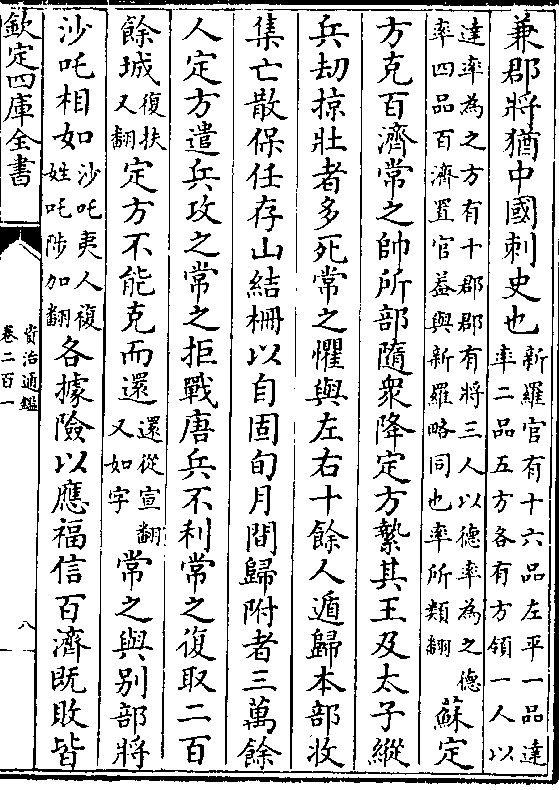 兼郡將猶中國刺史也新羅官有十六品左平一品達率二品五方各有方領一人以
達率為之方有十郡郡有將三人以德率為之德率四品百濟置官葢與新羅略同也率所類翻蘇定
方克百濟常之帥所部隨衆降定方縶其王及太子縱
兵劫掠壯者多死常之懼與左右十餘人遁歸本部收
集亡散保任存山結柵以自固旬月間歸附者三萬餘
人定方遣兵攻之常之拒戰唐兵不利常之復取二百
餘城復扶又翻定方不能克而還還從宣翻又如字常之與別部將
沙吒相如沙吒夷人複姓吒陟加翻各據險以應福信百濟既敗皆
欽定四庫全書
資治通鑑
卷二百一
八